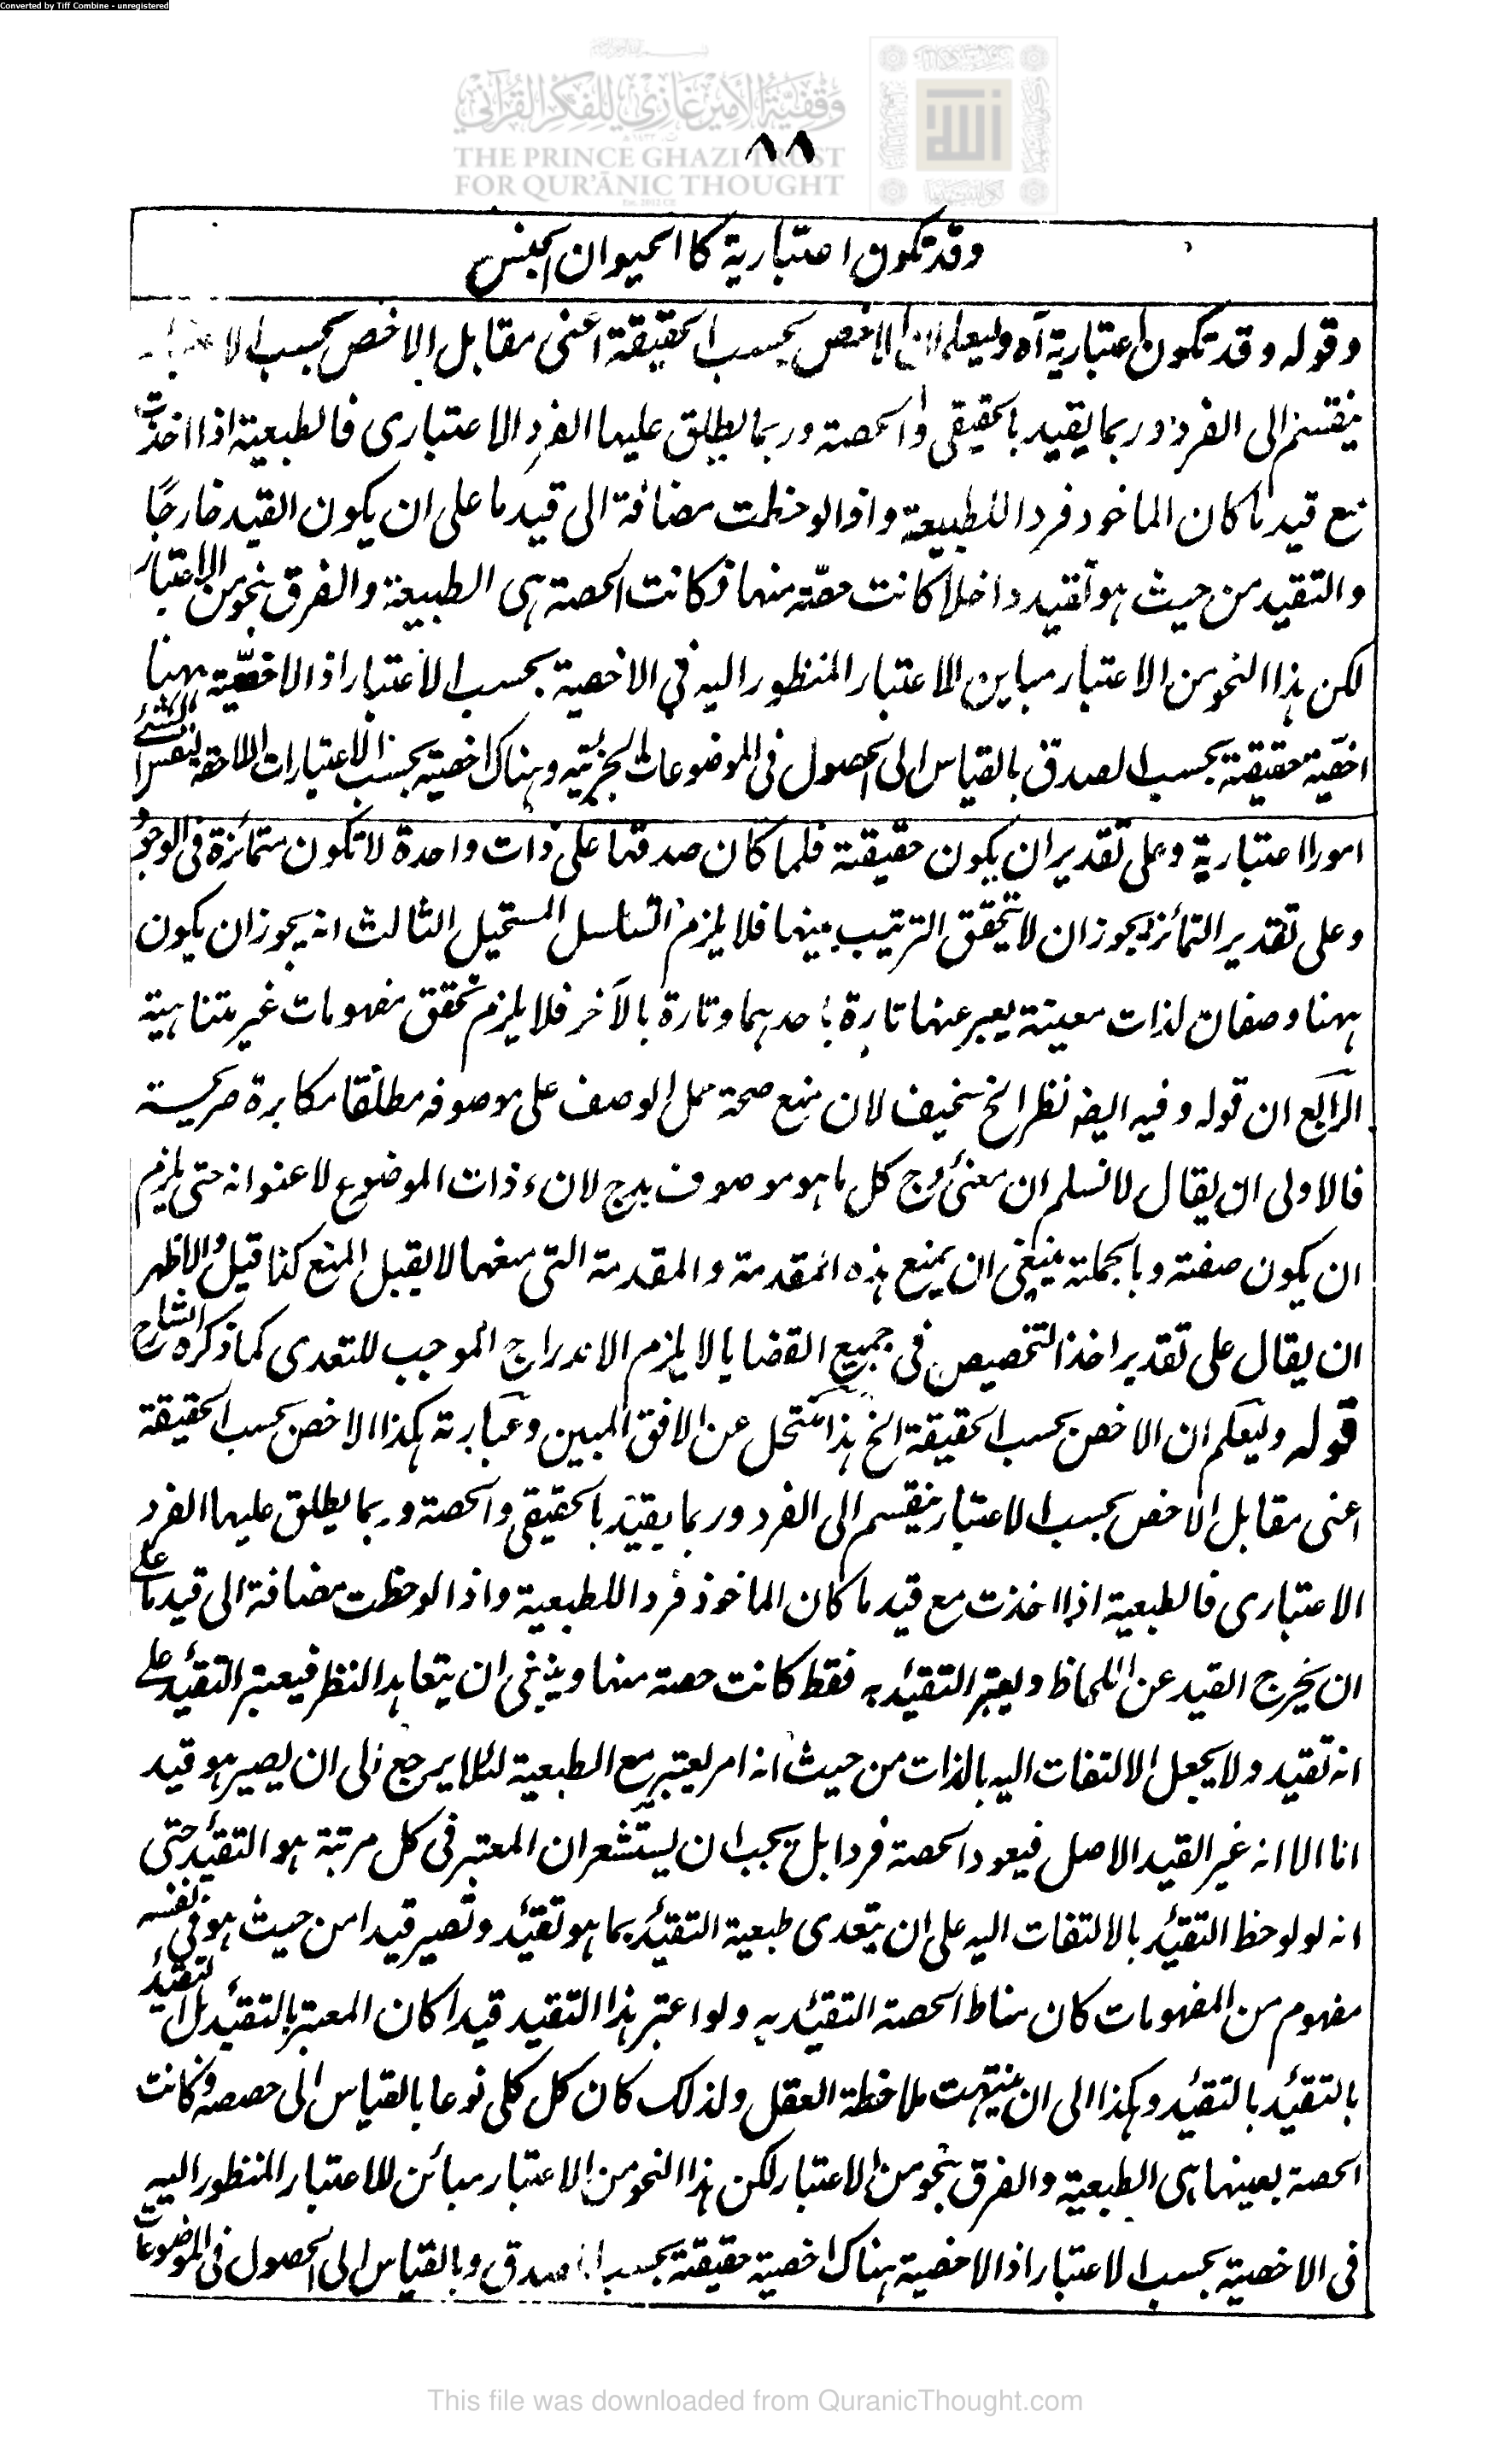 Converted by Tiff Combine - unregistered
وقفية الأمير غازي للفكر القرآني
THE PRINCE GHAZI TRUST
FOR QUR'ĀNIC THOUGHT
٨٨
وقد تكون اعتبارية كالحيوان الجنس
وقوله وقد تكون اعتبارية آه وليعلم ان الاخص بحسب الحقيقة اعنى مقابل الاخص بحسب الاعتبار
ينقسم الى الفرد وربما يقيد بالحقيقى والحصة وربما يطلق عليها الفرد الاعتبارى فالطبعية اذا اخذت
مع قيد ما كان الماخوذ فردا للطبيعة واذا لوحظت مضافة الى قيد ما على ان يكون القيد خارجًا
والتقيد من حيث هو تقيد داخلاً كانت حصّة منها فكانت الحصة هى الطبيعة والفرق بنحو من الاعتبار
لكن هذا النحو من الاعتبار مباين للاعتبار المنظور اليه فى الاخصية بحسب الاعتبار اذ الاخصّية ههنا
اخصّية حقيقية بحسب الصدق بالقياس الى الحصول فى الموضوعات الجزئية وهناك اخصية بحسب الاعتبارات اللاحقة لنفس الشئ
امورا اعتبارية وعلى تقدير ان يكون حقيقة فلما كان صدقها على ذات واحدة لا تكون متمائزة فى الوجود
وعلى تقدير التمائز يجوز ان لا يتحقق الترتيب بينها فلا يلزم التسلسل المستحيل الثالث انه يجوز ان يكون
ههنا وصفان لذات معينة يعبر عنها تارة باحدهما وتارة بالآخر فلا يلزم تحقق مفهومات غير متناهية
الرابع ان قوله وفيه ايضا نظر الخ سخيف لان منع صحة حمل الوصف على موصوفه مطلقا مكابرة صريحة
فالاولى ان يقال لا نسلم ان معنى ج كل ما هو موصوف بج لان ذات الموضوع لا عنوانه حتى يلزم
ان يكون صفة وبالجملة ينبغى ان يمنع هذه المقدمة والمقدمة التى منعها لا يقبل المنع كذا قيل والاظهر
ان يقال على تقدير اخذ التخصيص فى جميع القضايا لا يلزم الاندراج الموجب للتعدى كما ذكره الشارح
قوله وليعلم ان الاخص بحسب الحقيقة الخ هذا منتحل عن الافق المبين وعبارته هكذا الاخص بحسب الحقيقة
اعنى مقابل الاخص بحسب الاعتبار ينقسم الى الفرد وربما يقيد بالحقيقى والحصة وربما يطلق عليها الفرد
الاعتبارى فالطبعية اذا اخذت مع قيد ما كان الماخوذ فردا للطبعية واذا لوحظت مضافة الى قيد ما على
ان يخرج القيد عن اللحاظ ويعتبر التقيد به فقط كانت حصة منها وينبغى ان يتعاهد النظر فيعتبر التقيد على
انه تقيد ولا يجعل الالتفات اليه بالذات من حيث انه امر يعتبر مع الطبعية لئلا يرجع الى ان يصير هو قيد
انا الا انه غير القيد الاصل فيعود الحصة فردا بل يجب ان يستشعر ان المعتبر فى كل مرتبة هو التقيد حتى
انه لو لوحظ التقيد بالالتفات اليه على ان يتعدى طبعية التقيد بما هو تقيد وتصير قيدا من حيث هو فى نفسه
مفهوم من المفهومات كان مناط الحصة التقيد به ولو اعتبر هذا التقيد قيدا كان المعتبر بالتقيد بل التقيد
بالتقيد بالتقيد وهكذا الى ان ينبهت ملاحظة العقل ولذلك كان كل كلى نوعا بالقياس الى حصصه وكانت
الحصة بعينها هى الطبعية والفرق بنحو من الاعتبار لكن هذا النحو من الاعتبار مبائن للاعتبار المنظور اليه
فى الاخصية بحسب الاعتبار اذ الاخصية هناك اخصية حقيقة بحسب الصدق وبالقياس الى الحصول فى الموضوعات
This file was downloaded from QuranicThought.com